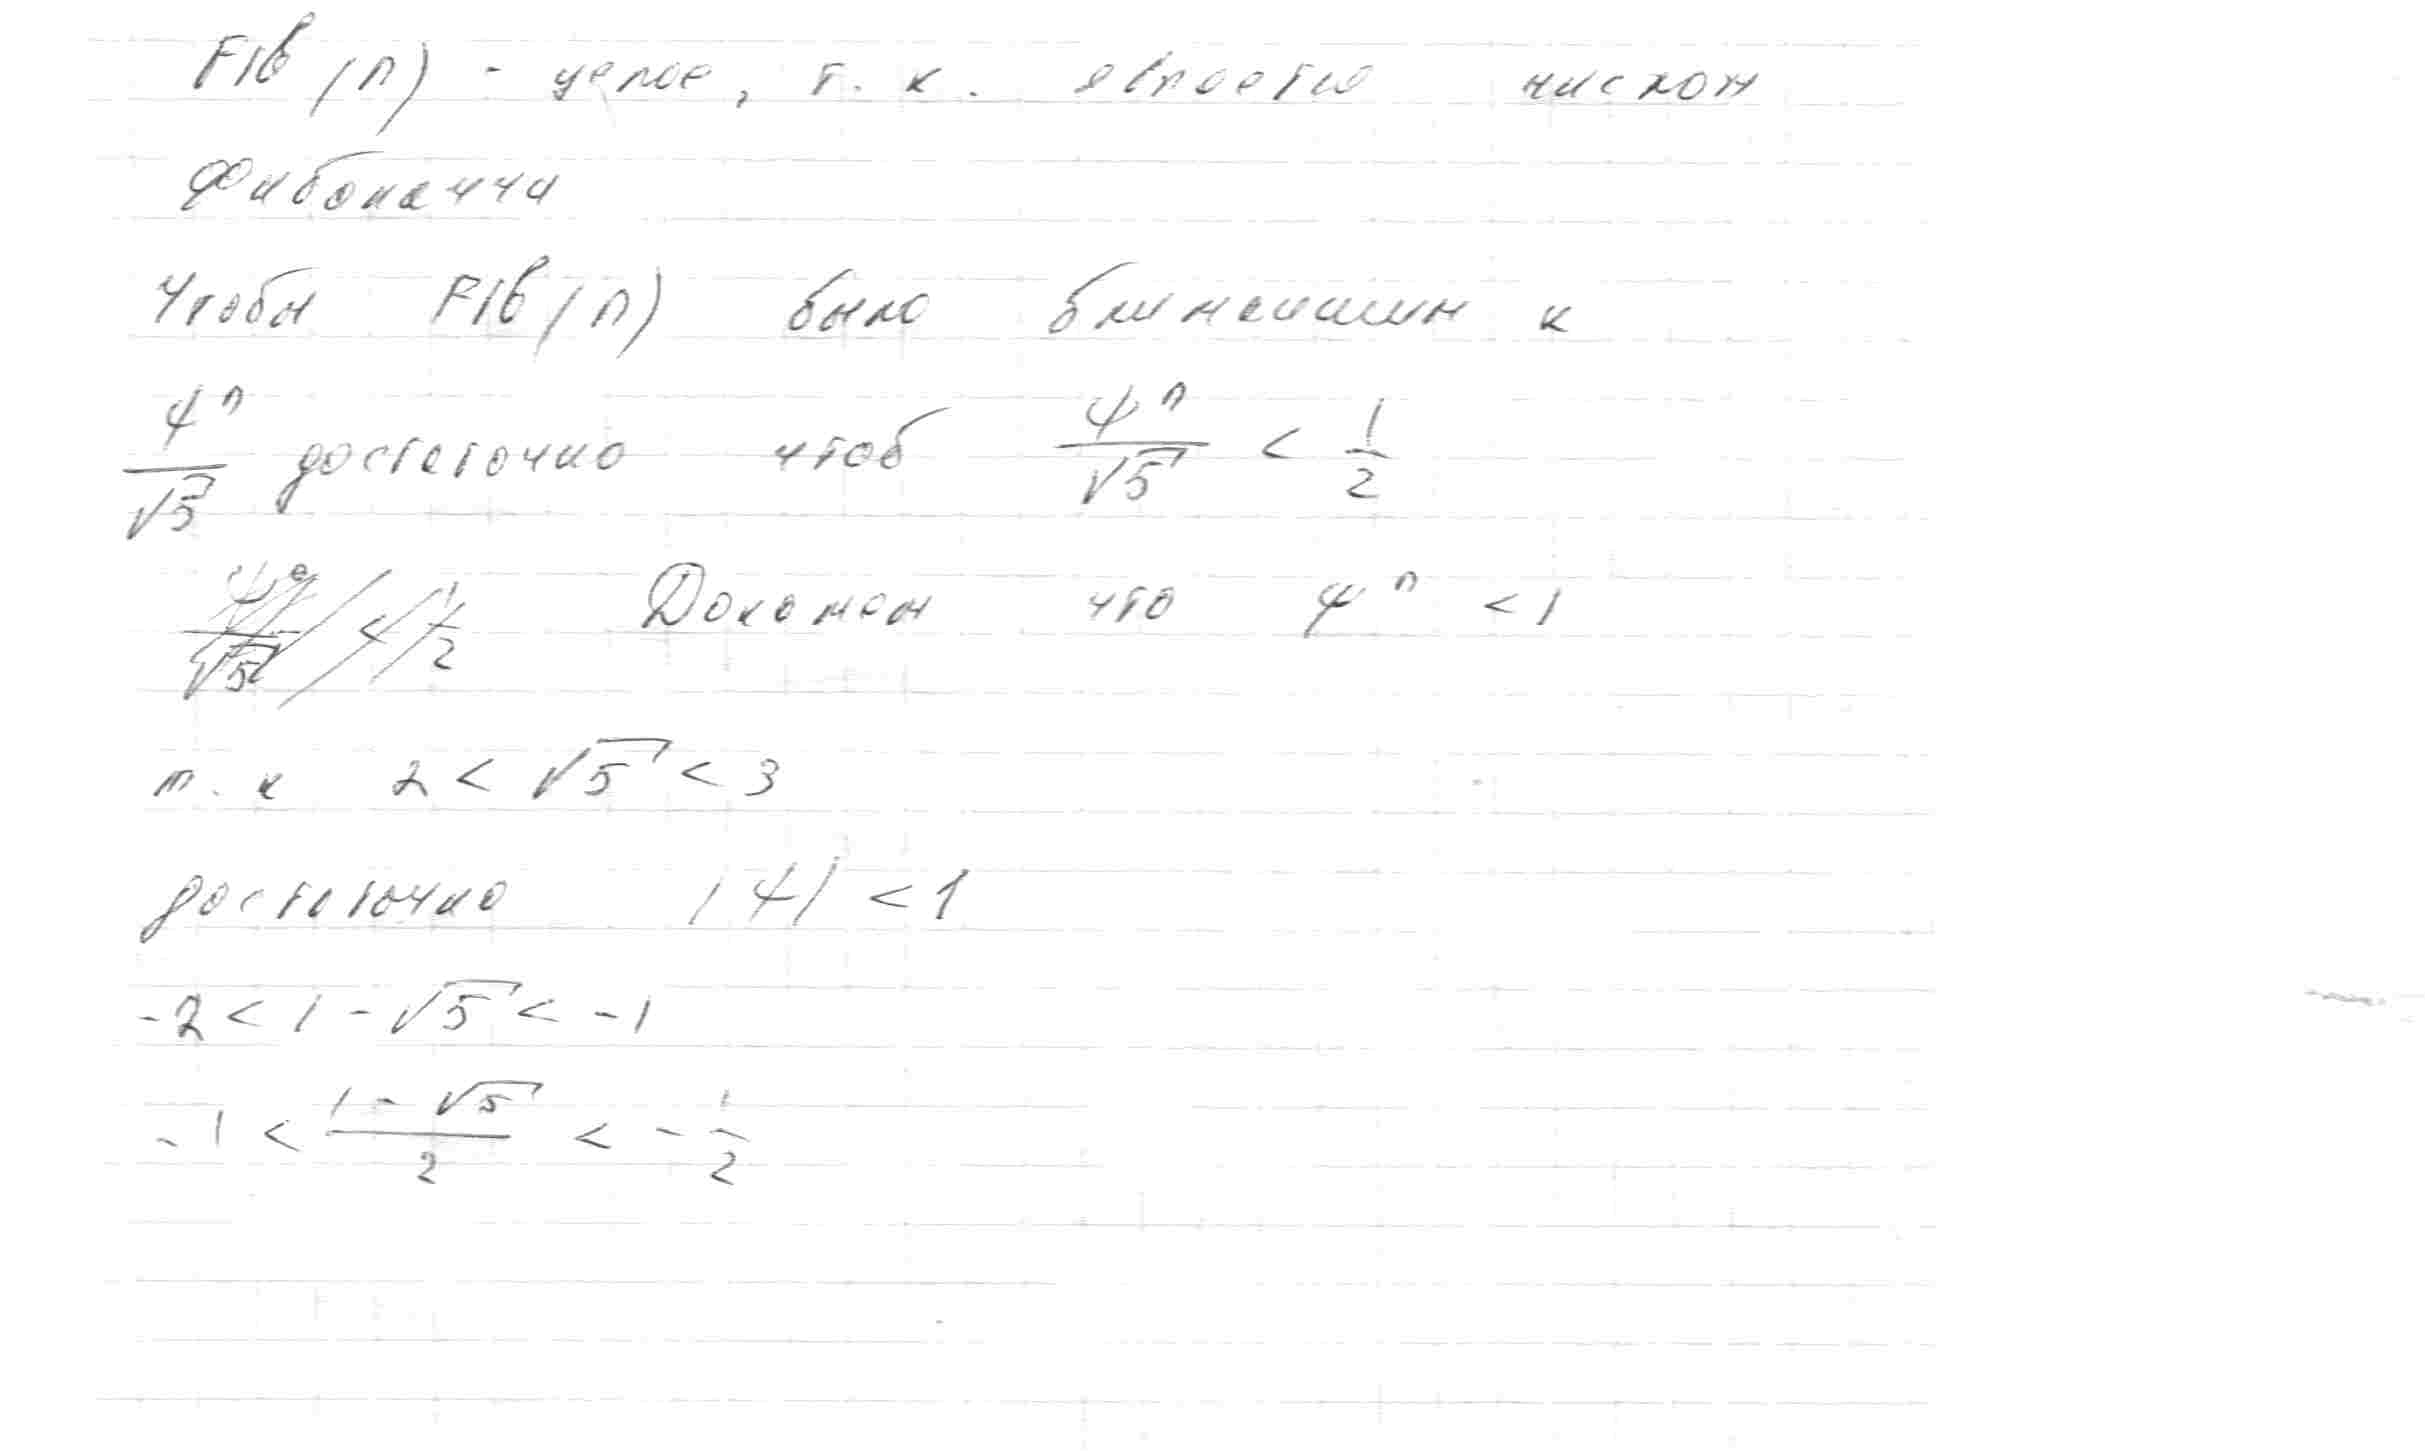 FIB(n) - целое, т. к. является числом
Фибоначчи
Чтобы FIB(n) было ближайшим к
φⁿ/√5 достаточно чтоб ψⁿ/√5 < 1/2
Докажем что ψⁿ < 1
т. к 2 < √5 < 3
достаточно |ψ| < 1
-2 < 1 - √5 < -1
-1 < (1 - √5)/2 < - 1/2